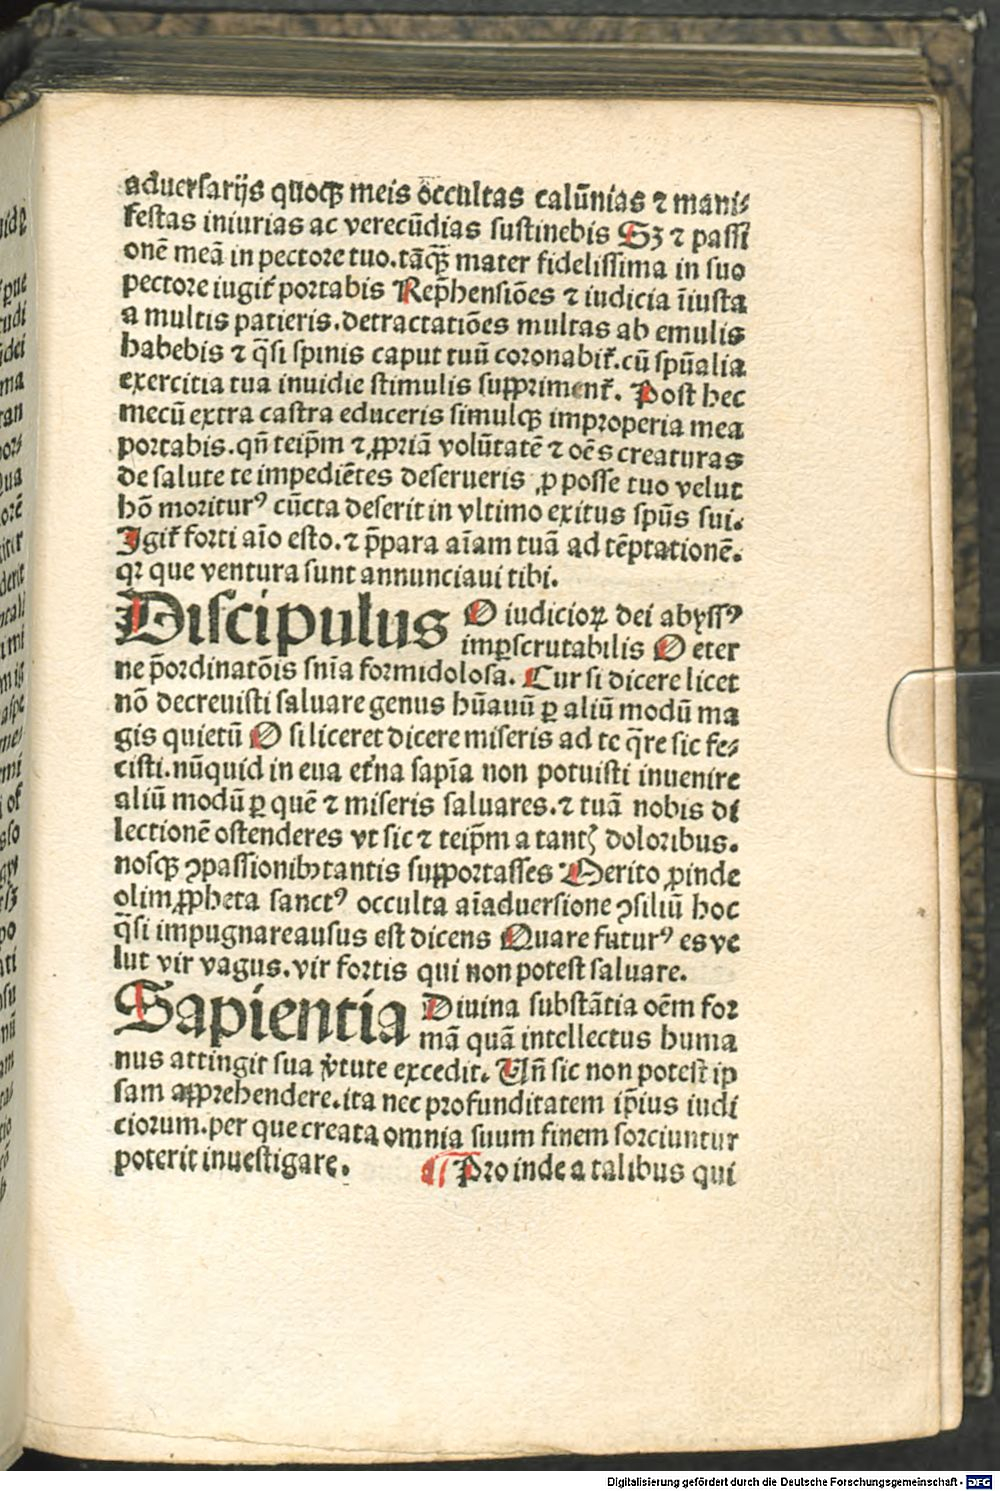 aduersarijs quoqꝫ meis occultas calūnias ⁊ mani⸗
festas iniurias ac verecūdias sustinebis Sꝫ ⁊ passi
onē meā in pectore tuo. tāqꝫ̄ mater fidelissima in suo
pectore iugit᷑ portabis Rep̄hensiōes ⁊ iudicia īiusta
a multis patieris. detractatiōes multas ab emulis
habebis ⁊ q̄si spinis caput tuū coronabit᷑. cū spūalia
exercitia tua inuidie stimulis supprimēnt᷑. Post hec
mecū extra castra educeris simulqꝫ improperia mea
portabis. qn̄ teip̄m ⁊ ꝓpriā volūtatē ⁊ oēs creaturas
de salute te impediētes deserueris ꝓ posse tuo velut
hō moriturꝰ cūcta deserit in vltimo exitus spūs sui.
Igit᷑ forti aīo esto. ⁊ p̄para aīam tuā ad tēptationē.
qꝛ que ventura sunt annunciaui tibi.
Discipulus O iudicioꝝ dei abyssꝰ
imꝑscrutabilis O eter
ne p̄ordinatōis snīa formidolosa. Cur si dicere licet
nō decreuisti saluare genus hūanū ꝑ aliū modū ma
gis quietū O si liceret dicere miseris ad te q̄re sic fe⸗
cisti. nūquid in eua et᷑na sapīa non potuisti inuenire
aliū modū ꝑ quē ⁊ miseris saluares. ⁊ tuā nobis di
lectionē ostenderes vt sic ⁊ teip̄m a tantꝭ doloribus.
nosqꝫ ꝯpassionibꝫ tantis supportasses Merito ꝓinde
olim ꝓpheta sanctꝰ occulta aīaduersione ꝯsiliū hoc
q̄si impugnare ausus est dicens Quare futurꝰ es ve
lut vir vagus. vir fortis qui non potest saluare.
Sapientia Diuina substātia oēm for
mā quā intellectus huma
nus attingit sua v̄tute excedit. Un̄ sic non potest ip
sam apprehendere. ita nec profunditatem ip̄ius iudi
ciorum. per que creata omnia suum finem sorciuntur
poterit inuestigare. ¶ Pro inde a talibus qui
Digitalisierung gefördert durch die Deutsche Forschungsgemeinschaft - DFG